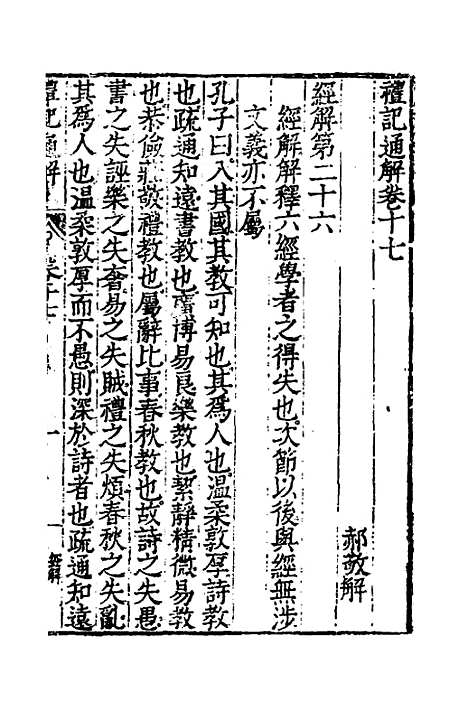 禮記通解卷十七
郝敬解
經解第二十六
經解解釋六經學者之得失也次節以後與經無涉
文義亦不屬
孔子曰入其國其教可知也其爲人也溫柔敦厚詩教
也疏通知遠書教也廣博易良樂教也絜靜精微易教
也恭儉莊敬禮教也屬辭比事春秋教也故詩之失愚
書之失誣樂之失奢易之失賊禮之失煩春秋之失亂
其爲人也溫柔敦厚而不愚則深於詩者也疏通知遠
禮記通解 卷十七 一 經解